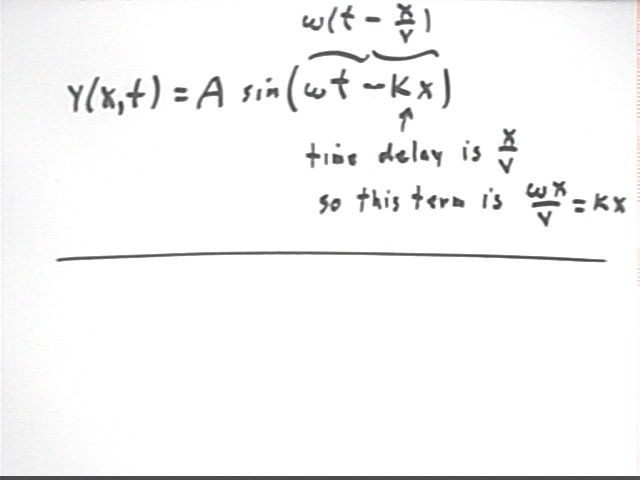 ω(t - x/v)
Y(x,t) = A sin(ωt - Kx)
time delay is x/v
so this term is ωx/v = Kx